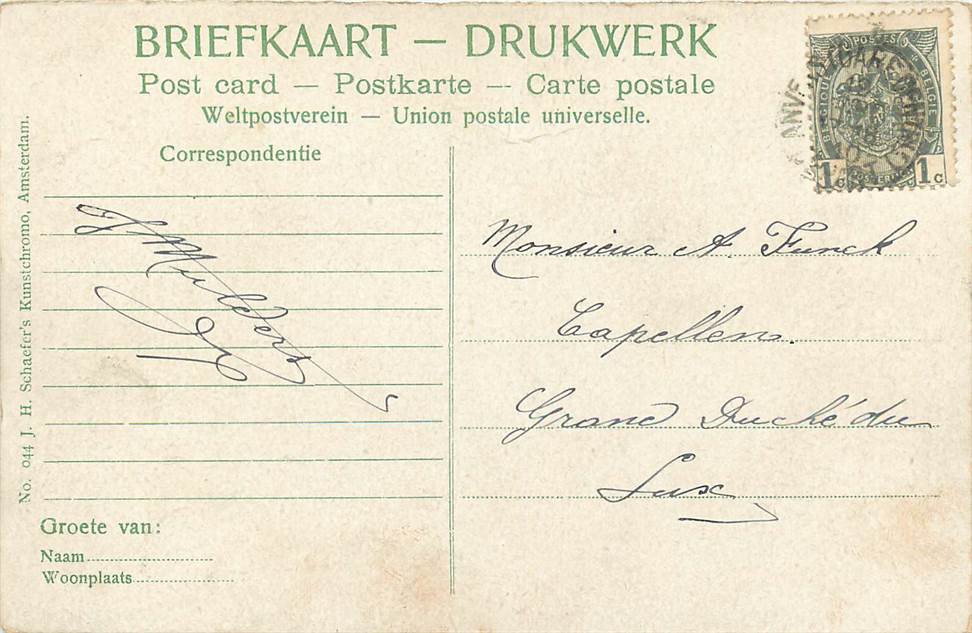 BRIEFKAART — DRUKWERK
Post card — Postkarte — Carte postale
Weltpostverein — Union postale universelle.
Correspondentie
Mulders
No. 044 J. H. Schaefer's Kunstchromo, Amsterdam.
Groete van:
Naam
Woonplaats
POSTES
BELGIQUE BELGIË
1c 1c
Monsieur A. Funck
Capellen.
Grand Duché du
Lux